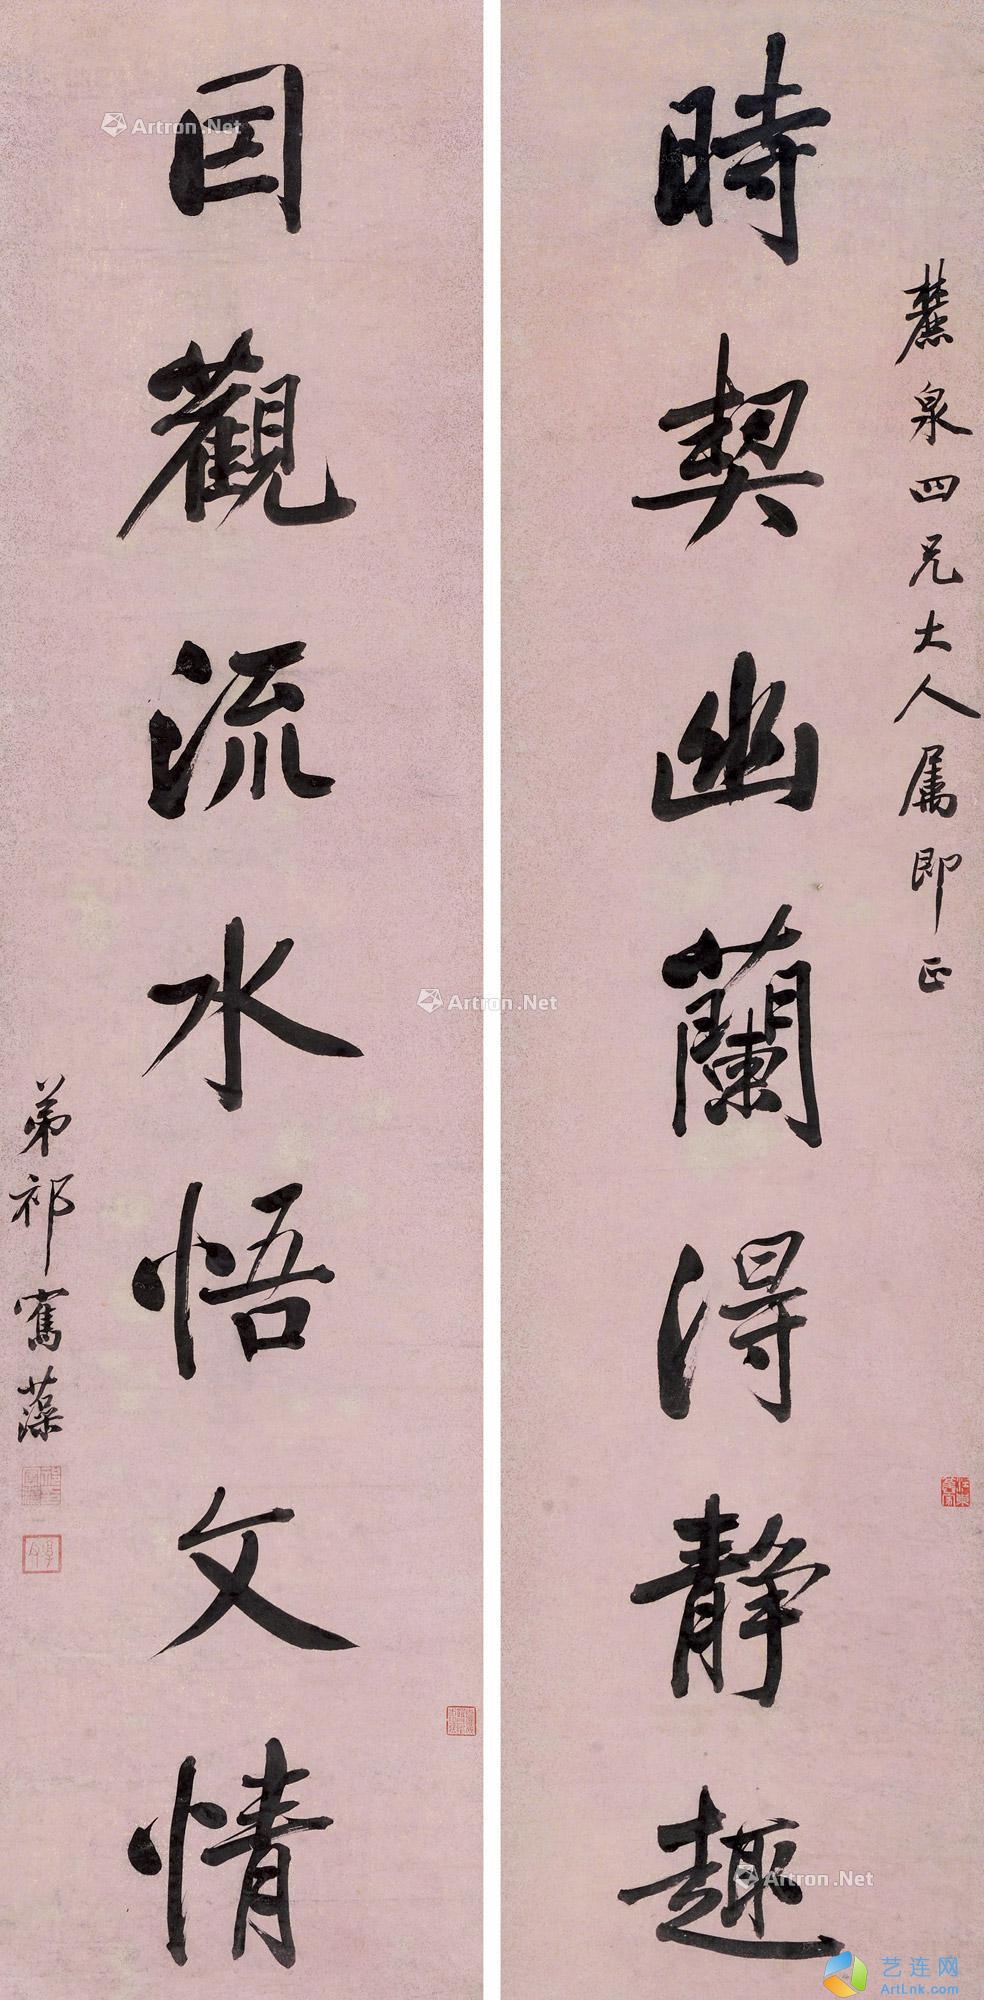 麓泉四兄大人属即正
時契幽蘭得静趣
囙觀流水悟文情
弟祁寯藻
Artron.Net
Artron.Net
Artron.Net
艺连网
ArtLnk.com